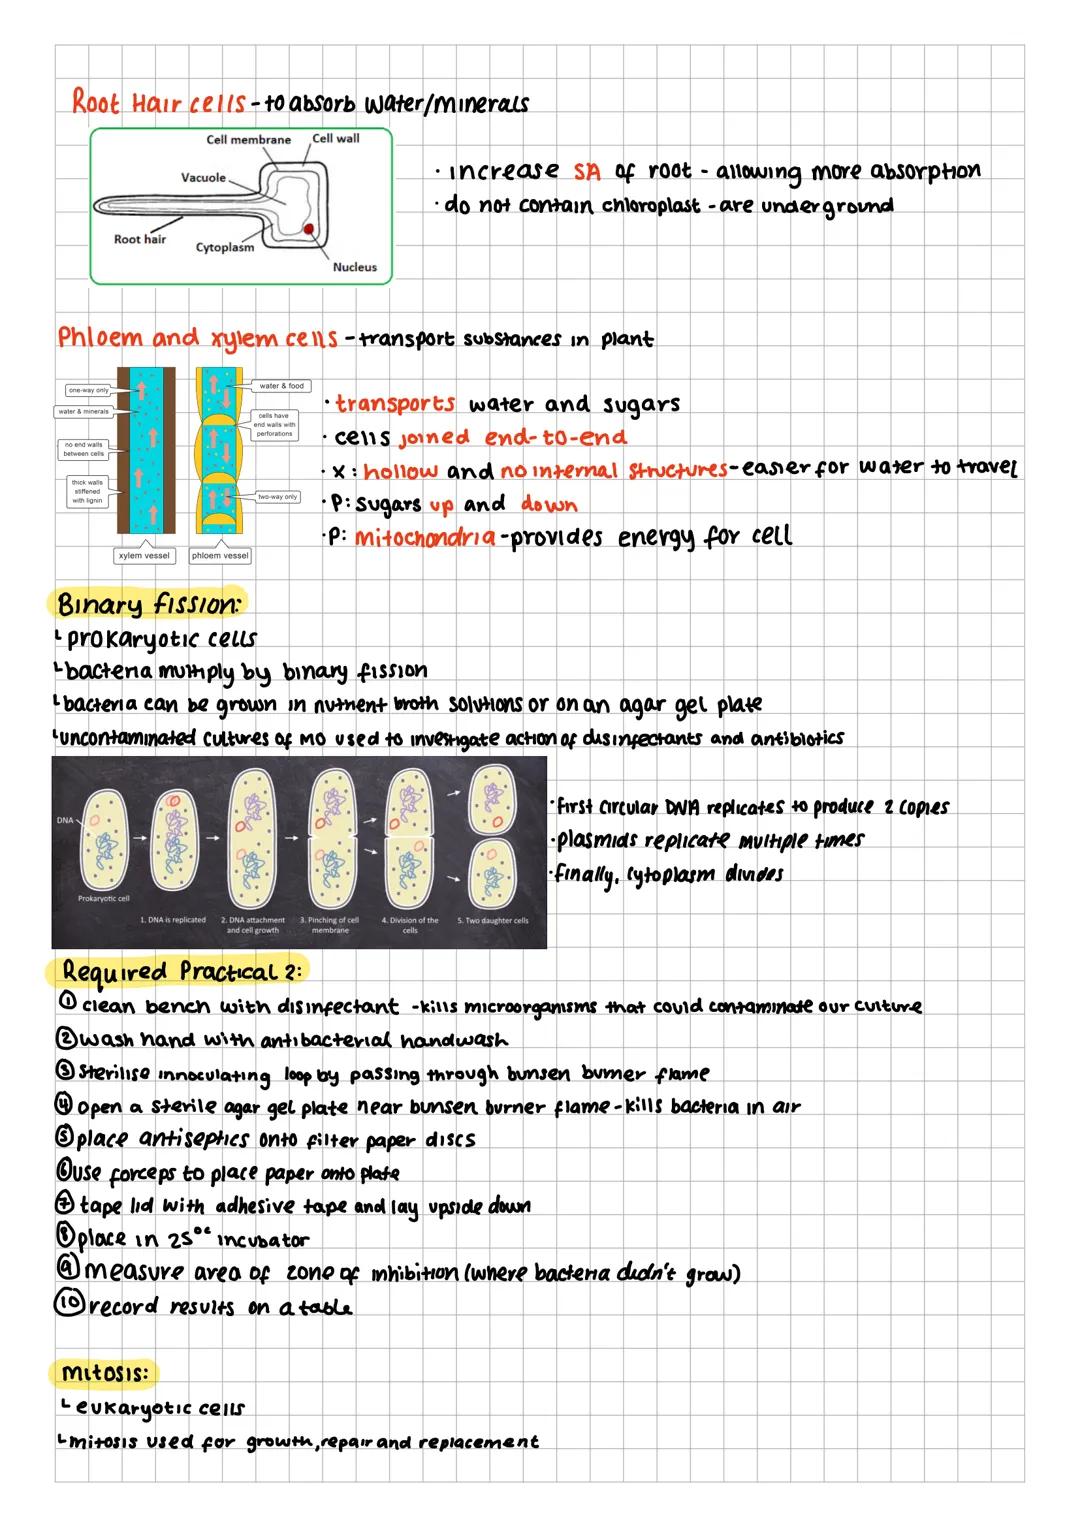 Root Hair cells - to absorb water/minerals
Cell membrane
Cell wall
Vacuole
Root hair
Cytoplasm
Nucleus
· increase SA of root - allowing more absorption
· do not contain chloroplast - are underground
Phloem and xylem cells - transport substances in plant
one-way only
water & minerals
no end walls between cells
thick walls stiffened with lignin
water & food
cells have end walls with perforations
two-way only
xylem vessel
phloem vessel
· transports water and sugars
· cells joined end-to-end
· X: hollow and no internal structures - easier for water to travel
· P: sugars up and down
· P: mitochondria - provides energy for cell
Binary fission:
└ prokaryotic cells
└ bacteria multiply by binary fission
└ bacteria can be grown in nutrient broth solutions or on an agar gel plate
└ uncontaminated cultures of MO used to investigate action of disinfectants and antibiotics
DNA
Prokaryotic cell
1. DNA is replicated
2. DNA attachment and cell growth
3. Pinching of cell membrane
4. Division of the cells
5. Two daughter cells
· first circular DNA replicates to produce 2 copies
· plasmids replicate multiple times
· finally, cytoplasm divides
Required Practical 2:
① clean bench with disinfectant - kills microorganisms that could contaminate our culture
② wash hand with antibacterial handwash
③ sterilise innoculating loop by passing through bunsen burner flame
④ open a sterile agar gel plate near bunsen burner flame - kills bacteria in air
⑤ place antiseptics onto filter paper discs
⑥ use forceps to place paper onto plate
⑦ tape lid with adhesive tape and lay upside down
⑧ place in 25°c incubator
⑨ measure area of zone of inhibition (where bacteria didn't grow)
⑩ record results on a table
mitosis:
└ eukaryotic cells
└ mitosis used for growth, repair and replacement